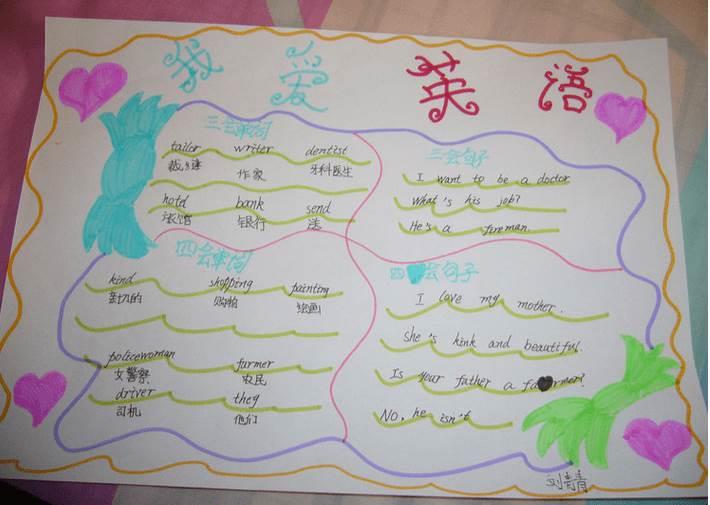 我爱英语
三会单词
tailor writer dentist
作家 牙科医生
hotel bank send
旅馆 银行 送
三会句子
I want to be a doctor
What's his job?
He's a fireman.
四会单词
kind shopping painting
购物 绘画
policewoman farmer
女警察 农民
driver they
司机 他们
四会句子
I love my mother.
She's kink and beautiful.
Is your father a farmer?
No, he isn't
刘青青